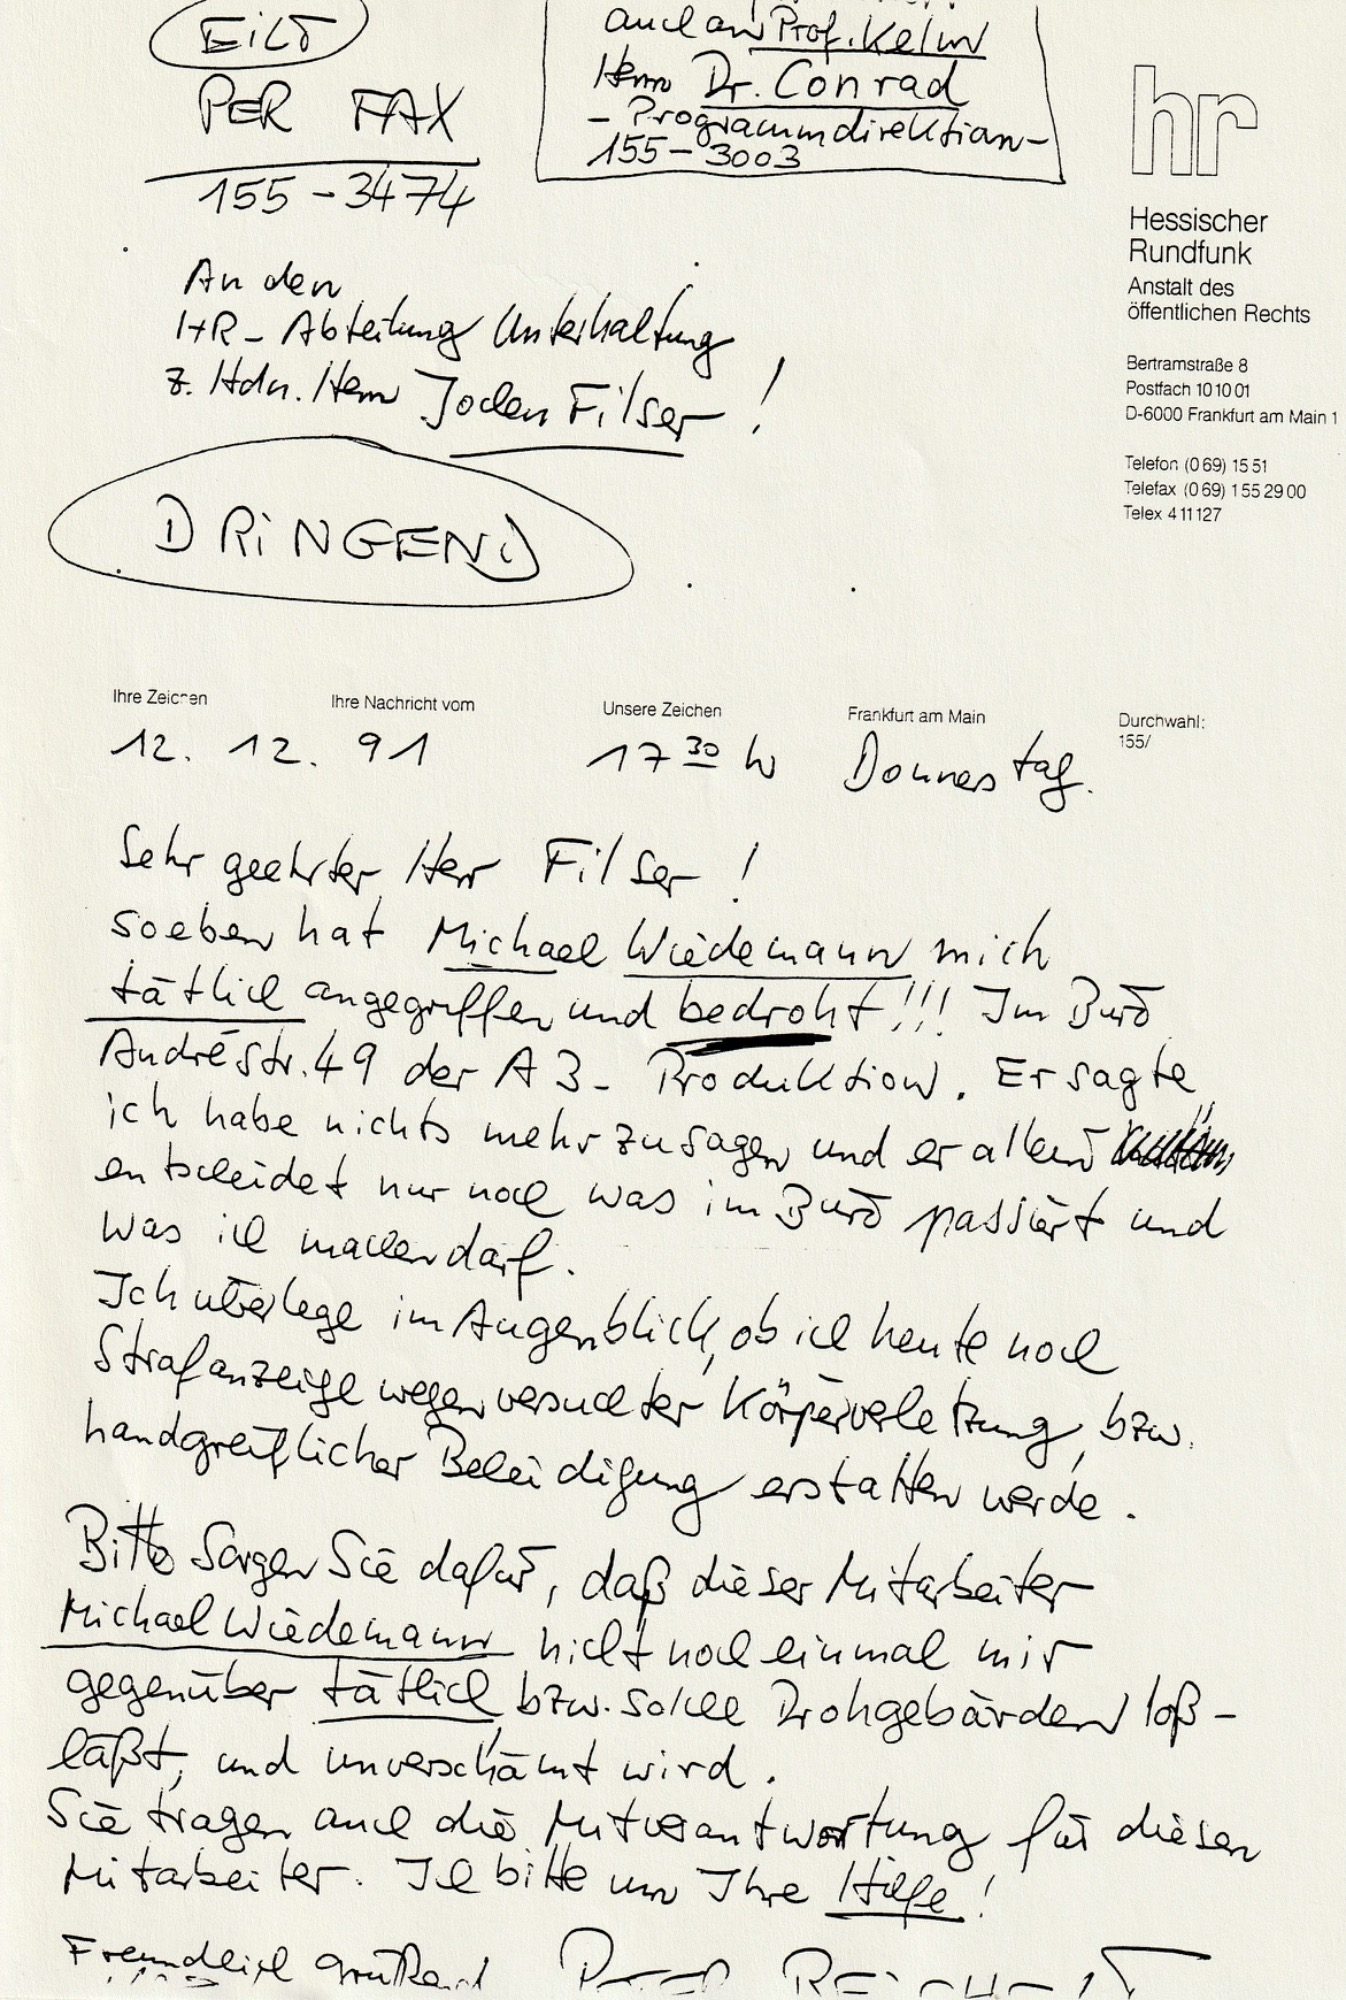 EiLT
PER FAX
155-3474
auch an Prof. Kelm
Herrn Dr. Conrad
- Programmdirektion -
155-3003
hr
Hessischer
Rundfunk
Anstalt des
öffentlichen Rechts
Bertramstraße 8
Postfach 10 10 01
D-6000 Frankfurt am Main 1
Telefon (0 69) 15 51
Telefax (0 69) 1 55 29 00
Telex 4 11 127
An den
HR- Abteilung Unterhaltung
z. Hdn. Herrn Jochen Filser!
DRiNGEND
Ihre Zeichen Ihre Nachricht vom Unsere Zeichen Frankfurt am Main Durchwahl:
155/
12. 12. 91 17 30 h Donnerstag.
Sehr geehrter Herr Filser!
soeben hat Michael Wiedemann mich
tätlich angegriffen und bedroht!!! Im Büro
Andréstr. 49 der A3-Produktion. Er sagte
ich habe nichts mehr zu sagen und er allein
entscheidet nur noch was im Büro passiert und
was ich machen darf.
Ich überlege im Augenblick, ob ich heute noch
Strafanzeige wegen versuchter Körperverletzung, bzw.
handgreiflicher Beleidigung erstatten werde.
Bitte sorgen Sie dafür, daß dieser Mitarbeiter
Michael Wiedemann nicht noch einmal mir
gegenüber tätlich, bzw. solche Drohgebärden loß-
läßt, und unverschämt wird.
Sie tragen auch die Mitverantwortung für diesen
Mitarbeiter. Ich bitte um Ihre Hilfe!
Freundlich grüßend